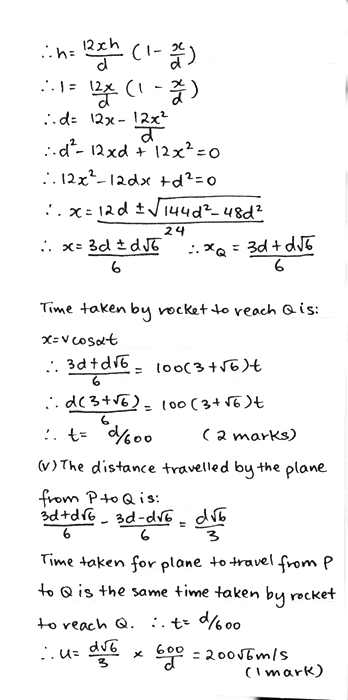 ∴h= 12xh/d (1- x/d)
∴1= 12x/d (1 - x/d)
∴d= 12x- 12x²/d
∴d²- 12xd + 12x²=0
∴12x²-12dx +d²=0
∴ x= (12d ±√(144d²-48d²))/24
∴ x= (3d ± d√6)/6 ∴xQ = (3d+d√6)/6
Time taken by rocket to reach Q is:
x=vcosαt
∴ (3d+d√6)/6 = 100(3+√6)t
∴ d(3+√6)/6 = 100(3+√6)t
∴ t= d/600 (2 marks)
(v) The distance travelled by the plane
from P to Q is:
(3d+d√6)/6 - (3d-d√6)/6 = d√6/3
Time taken for plane to travel from P
to Q is the same time taken by rocket
to reach Q. ∴t= d/600
∴u= d√6/3 × 600/d = 200√6m/s
(1mark)